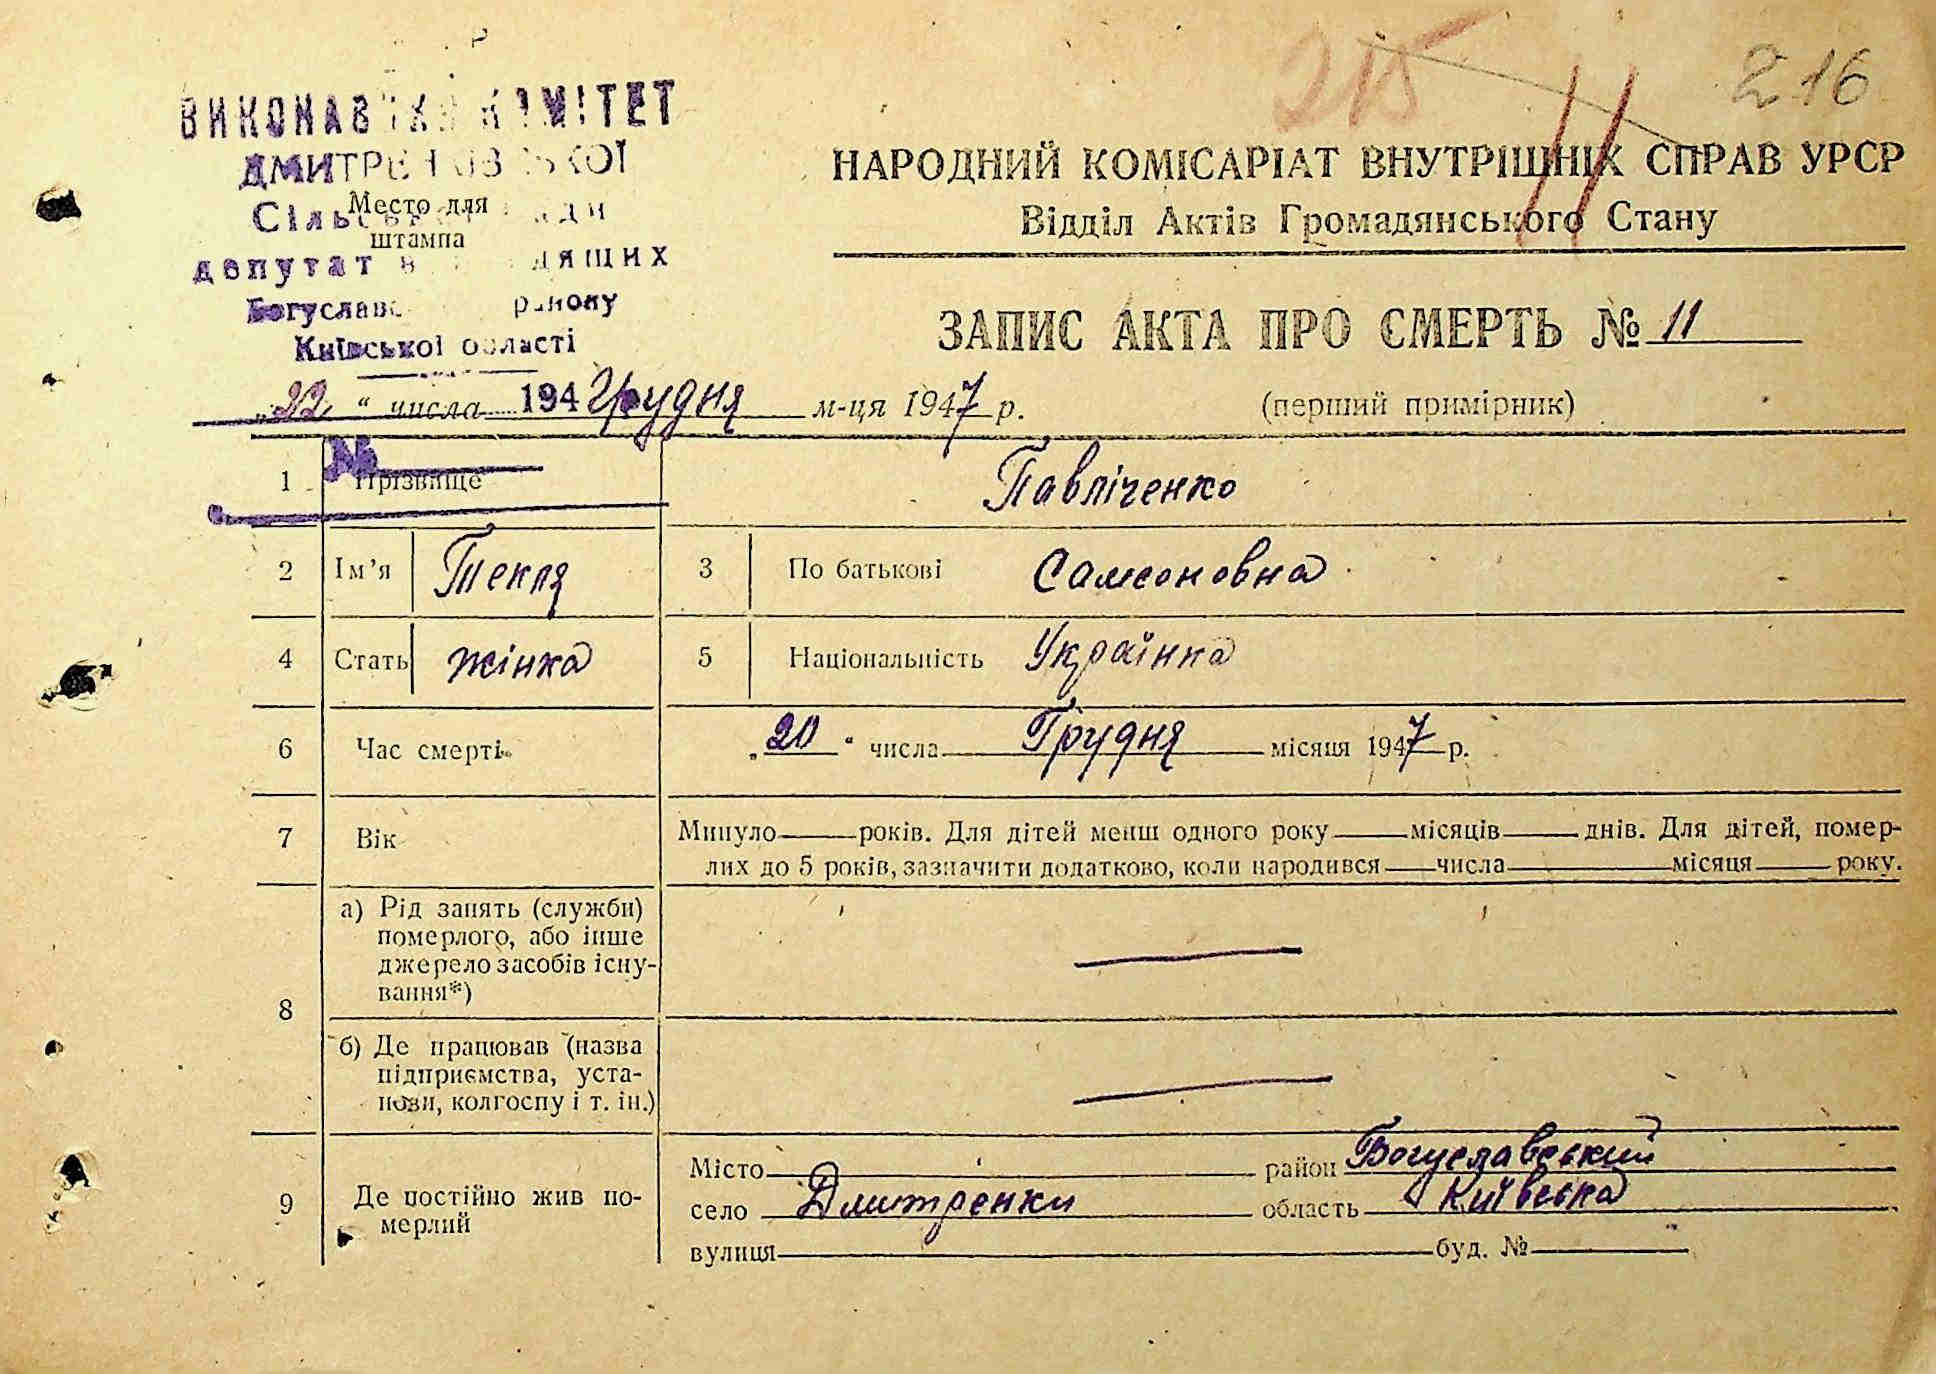 215 11 216
ВИКОНАВ КОМІТЕТ
ДМИТРЕНКІВСЬКОЇ
Сільської ради
Место для
штампа
депутатів трудящих
Богуславс району
Київської області
НАРОДНИЙ КОМІСАРІАТ ВНУТРІШНІХ СПРАВ УРСР
Відділ Актів Громадянського Стану
ЗАПИС АКТА ПРО СМЕРТЬ № 11
(перший примірник)
„22“ числа 194 Грудня м-ця 1947 р.
№
1 Прізвище Павліченко
2 Ім’я Текля 3 По батькові Самсоновна
4 Стать жінка 5 Національність Українка
6 Час смерті „20“ числа Грудня місяця 1947 р.
7 Вік Минуло років. Для дітей менш одного року місяців днів. Для дітей, помер-
лих до 5 років, зазначити додатково, коли народився числа місяця року.
8 а) Рід занять (служби)
померлого, або інше
джерело засобів існу-
вання*)
б) Де працював (назва
підприємства, уста-
нови, колгоспу і т. ін.)
9 Де постійно жив по-
мерлий
Місто район Богуславський
село Дмитренки область Київська
вулиця буд. №